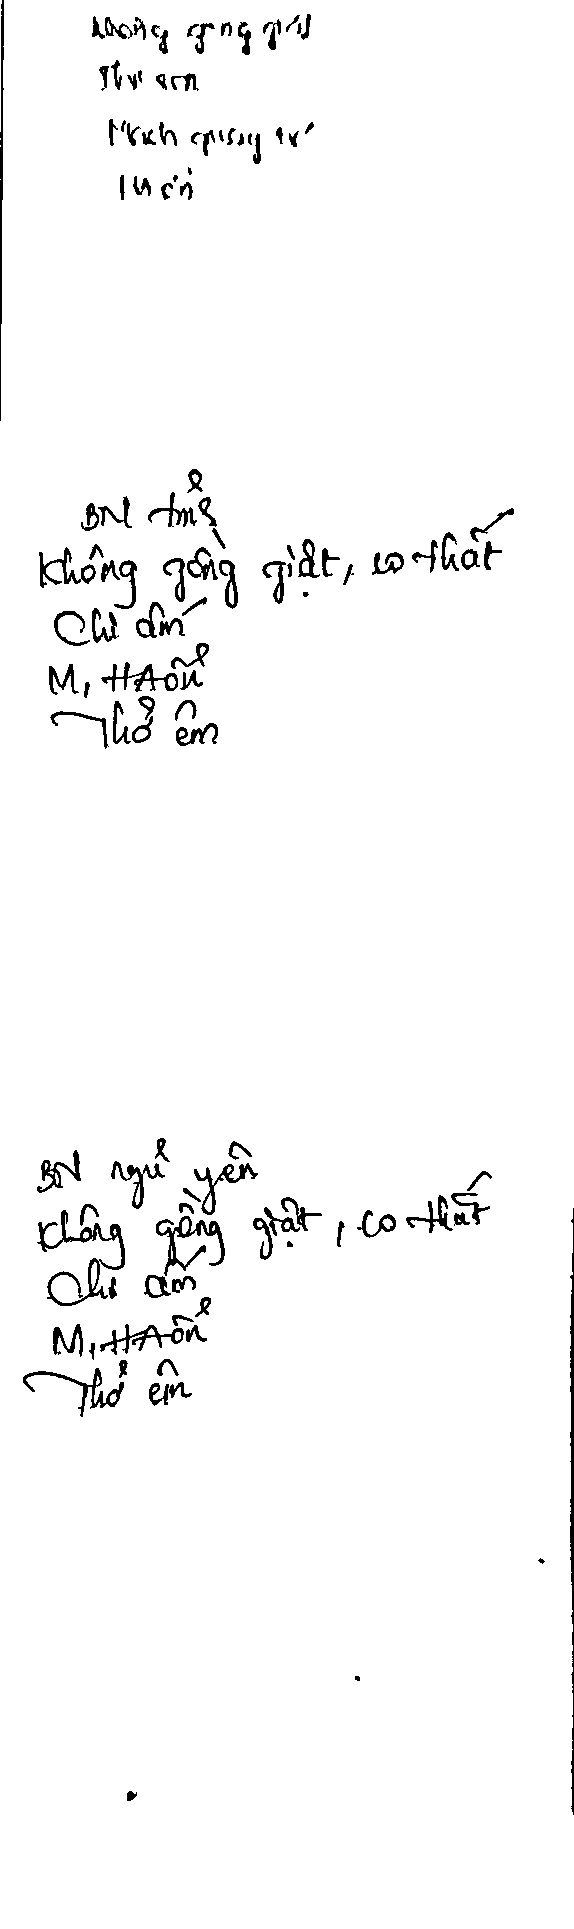 Không gồng giật
Thở êm
Mạch quay rõ
BN tỉnh
Không gồng giật, co thắt
Chi ấm
M, HA ổn
Thở êm
BN ngủ yên
Không gồng giật, co thắt
Chi ấm
M, HA ổn
Thở êm